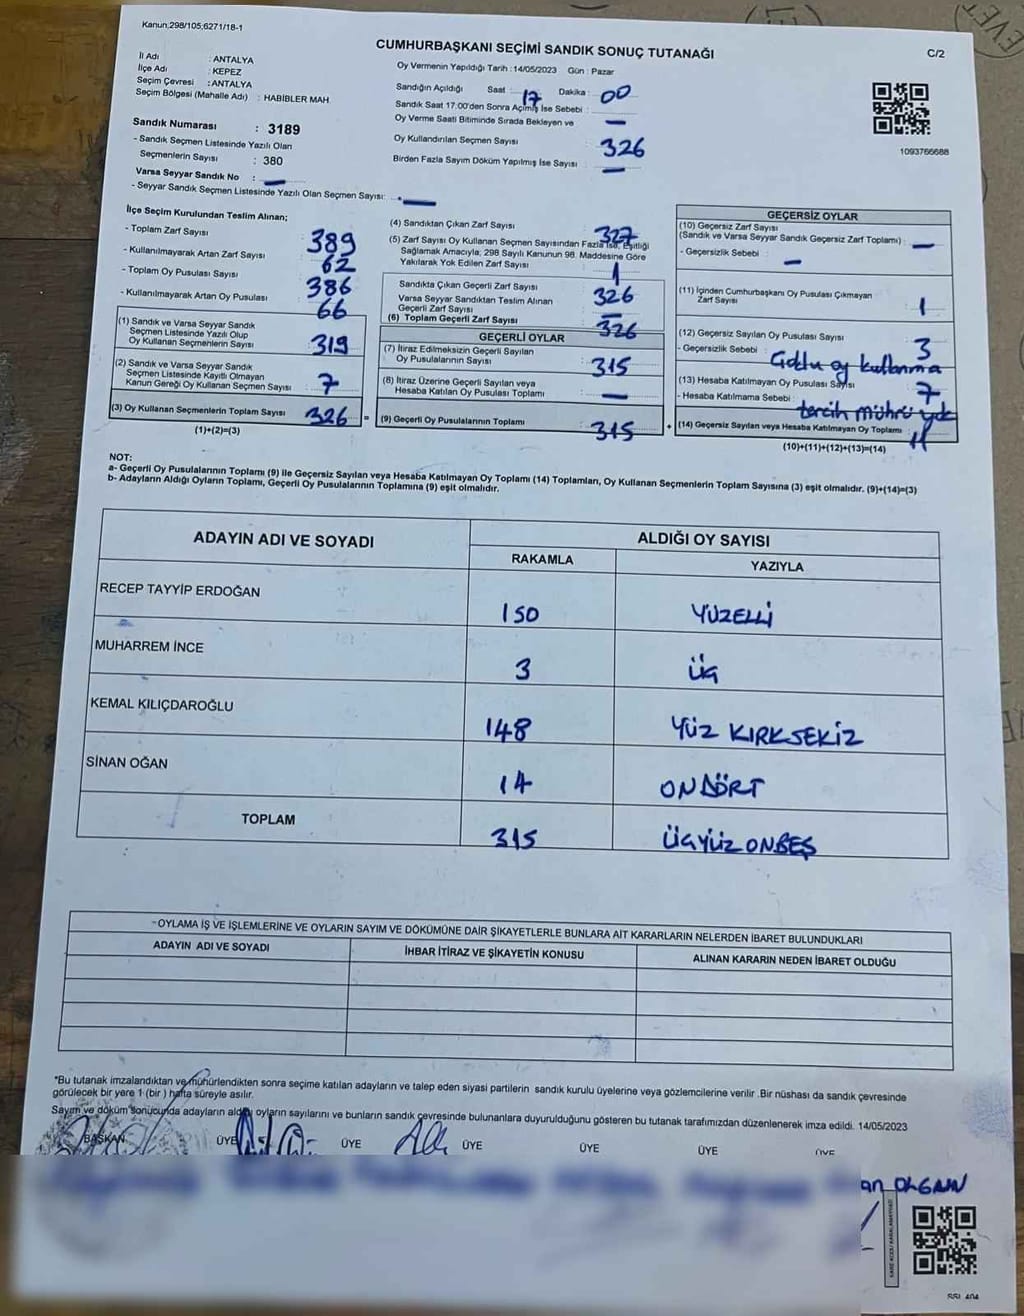 Kanun,298/105,6271/18-1
CUMHURBAŞKANI SEÇİMİ SANDIK SONUÇ TUTANAĞI
C/2
İl Adı : ANTALYA
İlçe Adı : KEPEZ
Seçim Çevresi : ANTALYA
Seçim Bölgesi (Mahalle Adı) : HABİBLER MAH.
Sandık Numarası : 3189
- Sandık Seçmen Listesinde Yazılı Olan
Seçmenlerin Sayısı : 380
Varsa Seyyar Sandık No : —
- Seyyar Sandık Seçmen Listesinde Yazılı Olan Seçmen Sayısı: —
Oy Vermenin Yapıldığı Tarih :14/05/2023 Gün : Pazar
Sandığın Açıldığı Saat : 17 Dakika : 00
Sandık Saat 17:00'den Sonra Açılmış İse Sebebi :
Oy Verme Saati Bitiminde Sırada Bekleyen ve —
Oy Kullandırılan Seçmen Sayısı 326
Birden Fazla Sayım Döküm Yapılmış İse Sayısı —
1093766688
İlçe Seçim Kurulundan Teslim Alınan;
- Toplam Zarf Sayısı 389
- Kullanılmayarak Artan Zarf Sayısı 62
- Toplam Oy Pusulası Sayısı 386
- Kullanılmayarak Artan Oy Pusulası 66
(1) Sandık ve Varsa Seyyar Sandık
Seçmen Listesinde Yazılı Olup
Oy Kullanan Seçmenlerin Sayısı 319
(2) Sandık ve Varsa Seyyar Sandık
Seçmen Listesinde Kayıtlı Olmayan
Kanun Gereği Oy Kullanan Seçmen Sayısı 7
(3) Oy Kullanan Seçmenlerin Toplam Sayısı 326 =
(1)+(2)=(3)
(4) Sandıktan Çıkan Zarf Sayısı 327
(5) Zarf Sayısı Oy Kullanan Seçmen Sayısından Fazla İse, Eşitliği
Sağlamak Amacıyla, 298 Sayılı Kanunun 98. Maddesine Göre
Yakılarak Yok Edilen Zarf Sayısı 1
Sandıkta Çıkan Geçerli Zarf Sayısı : 326
Varsa Seyyar Sandıktan Teslim Alınan
Geçerli Zarf Sayısı : —
(6) Toplam Geçerli Zarf Sayısı 326
GEÇERLİ OYLAR
(7) İtiraz Edilmeksizin Geçerli Sayılan
Oy Pusulalarının Sayısı : 315
(8) İtiraz Üzerine Geçerli Sayılan veya
Hesaba Katılan Oy Pusulası Toplamı : —
(9) Geçerli Oy Pusulalarının Toplamı : 315 +
GEÇERSİZ OYLAR
(10) Geçersiz Zarf Sayısı
(Sandık ve Varsa Seyyar Sandık Geçersiz Zarf Toplamı) : —
- Geçersizlik Sebebi : —
(11) İçinden Cumhurbaşkanı Oy Pusulası Çıkmayan
Zarf Sayısı : 1
(12) Geçersiz Sayılan Oy Pusulası Sayısı : 3
- Geçersizlik Sebebi : Çoklu oy kullanma
(13) Hesaba Katılmayan Oy Pusulası Sayısı 7
- Hesaba Katılmama Sebebi : tercih mührü yok
(14) Geçersiz Sayılan veya Hesaba Katılmayan Oy Toplamı : 11
(10)+(11)+(12)+(13)=(14)
NOT:
a- Geçerli Oy Pusulalarının Toplamı (9) ile Geçersiz Sayılan veya Hesaba Katılmayan Oy Toplamı (14) Toplamları, Oy Kullanan Seçmenlerin Toplam Sayısına (3) eşit olmalıdır. (9)+(14)=(3)
b- Adayların Aldığı Oyların Toplamı, Geçerli Oy Pusulalarının Toplamına (9) eşit olmalıdır.
ADAYIN ADI VE SOYADI
ALDIĞI OY SAYISI
RAKAMLA YAZIYLA
RECEP TAYYİP ERDOĞAN 150 YÜZELLİ
MUHARREM İNCE 3 ÜÇ
KEMAL KILIÇDAROĞLU 148 YÜZ KIRKSEKİZ
SİNAN OĞAN 14 ONDÖRT
TOPLAM 315 ÜÇYÜZ ONBEŞ
-OYLAMA İŞ VE İŞLEMLERİNE VE OYLARIN SAYIM VE DÖKÜMÜNE DAİR ŞİKAYETLERLE BUNLARA AİT KARARLARIN NELERDEN İBARET BULUNDUKLARI
ADAYIN ADI VE SOYADI İHBAR İTİRAZ VE ŞİKAYETİN KONUSU ALINAN KARARIN NEDEN İBARET OLDUĞU
*Bu tutanak imzalandıktan ve mühürlendikten sonra seçime katılan adayların ve talep eden siyasi partilerin sandık kurulu üyelerine veya gözlemcilerine verilir .Bir nüshası da sandık çevresinde
görülecek bir yere 1 (bir ) hafta süreyle asılır.
Sayım ve döküm sonucunda adayların aldığı oyların sayılarını ve bunların sandık çevresinde bulunanlara duyurulduğunu gösteren bu tutanak tarafımızdan düzenlenerek imza edildi. 14/05/2023
BAŞKAN ÜYE ÜYE ÜYE ÜYE ÜYE ÜYE